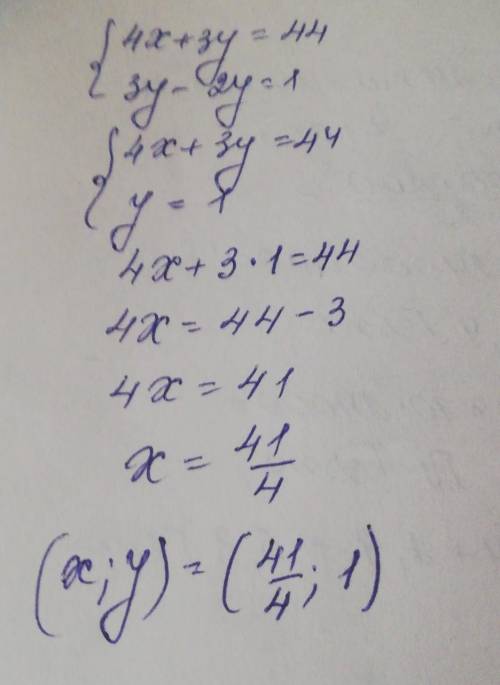 4x+3y=44
3y-2y=1
4x+3y=44
y=1
4x+3·1=44
4x=44-3
4x=41
x=41/4
(x;y)=(41/4;1)